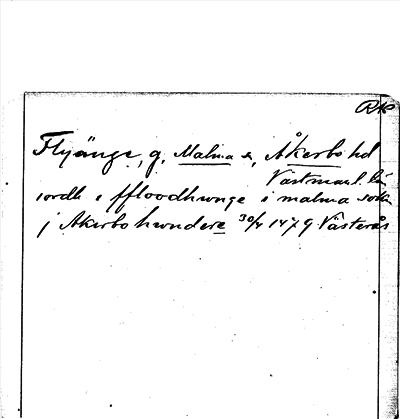 RA
Flyänge, g, Malma sn, Åkerbo hd
Västmanl. län
iordh i ffloodhwnge i malma sokn
j Akerbo hwndere 30/4 1479 Västerås